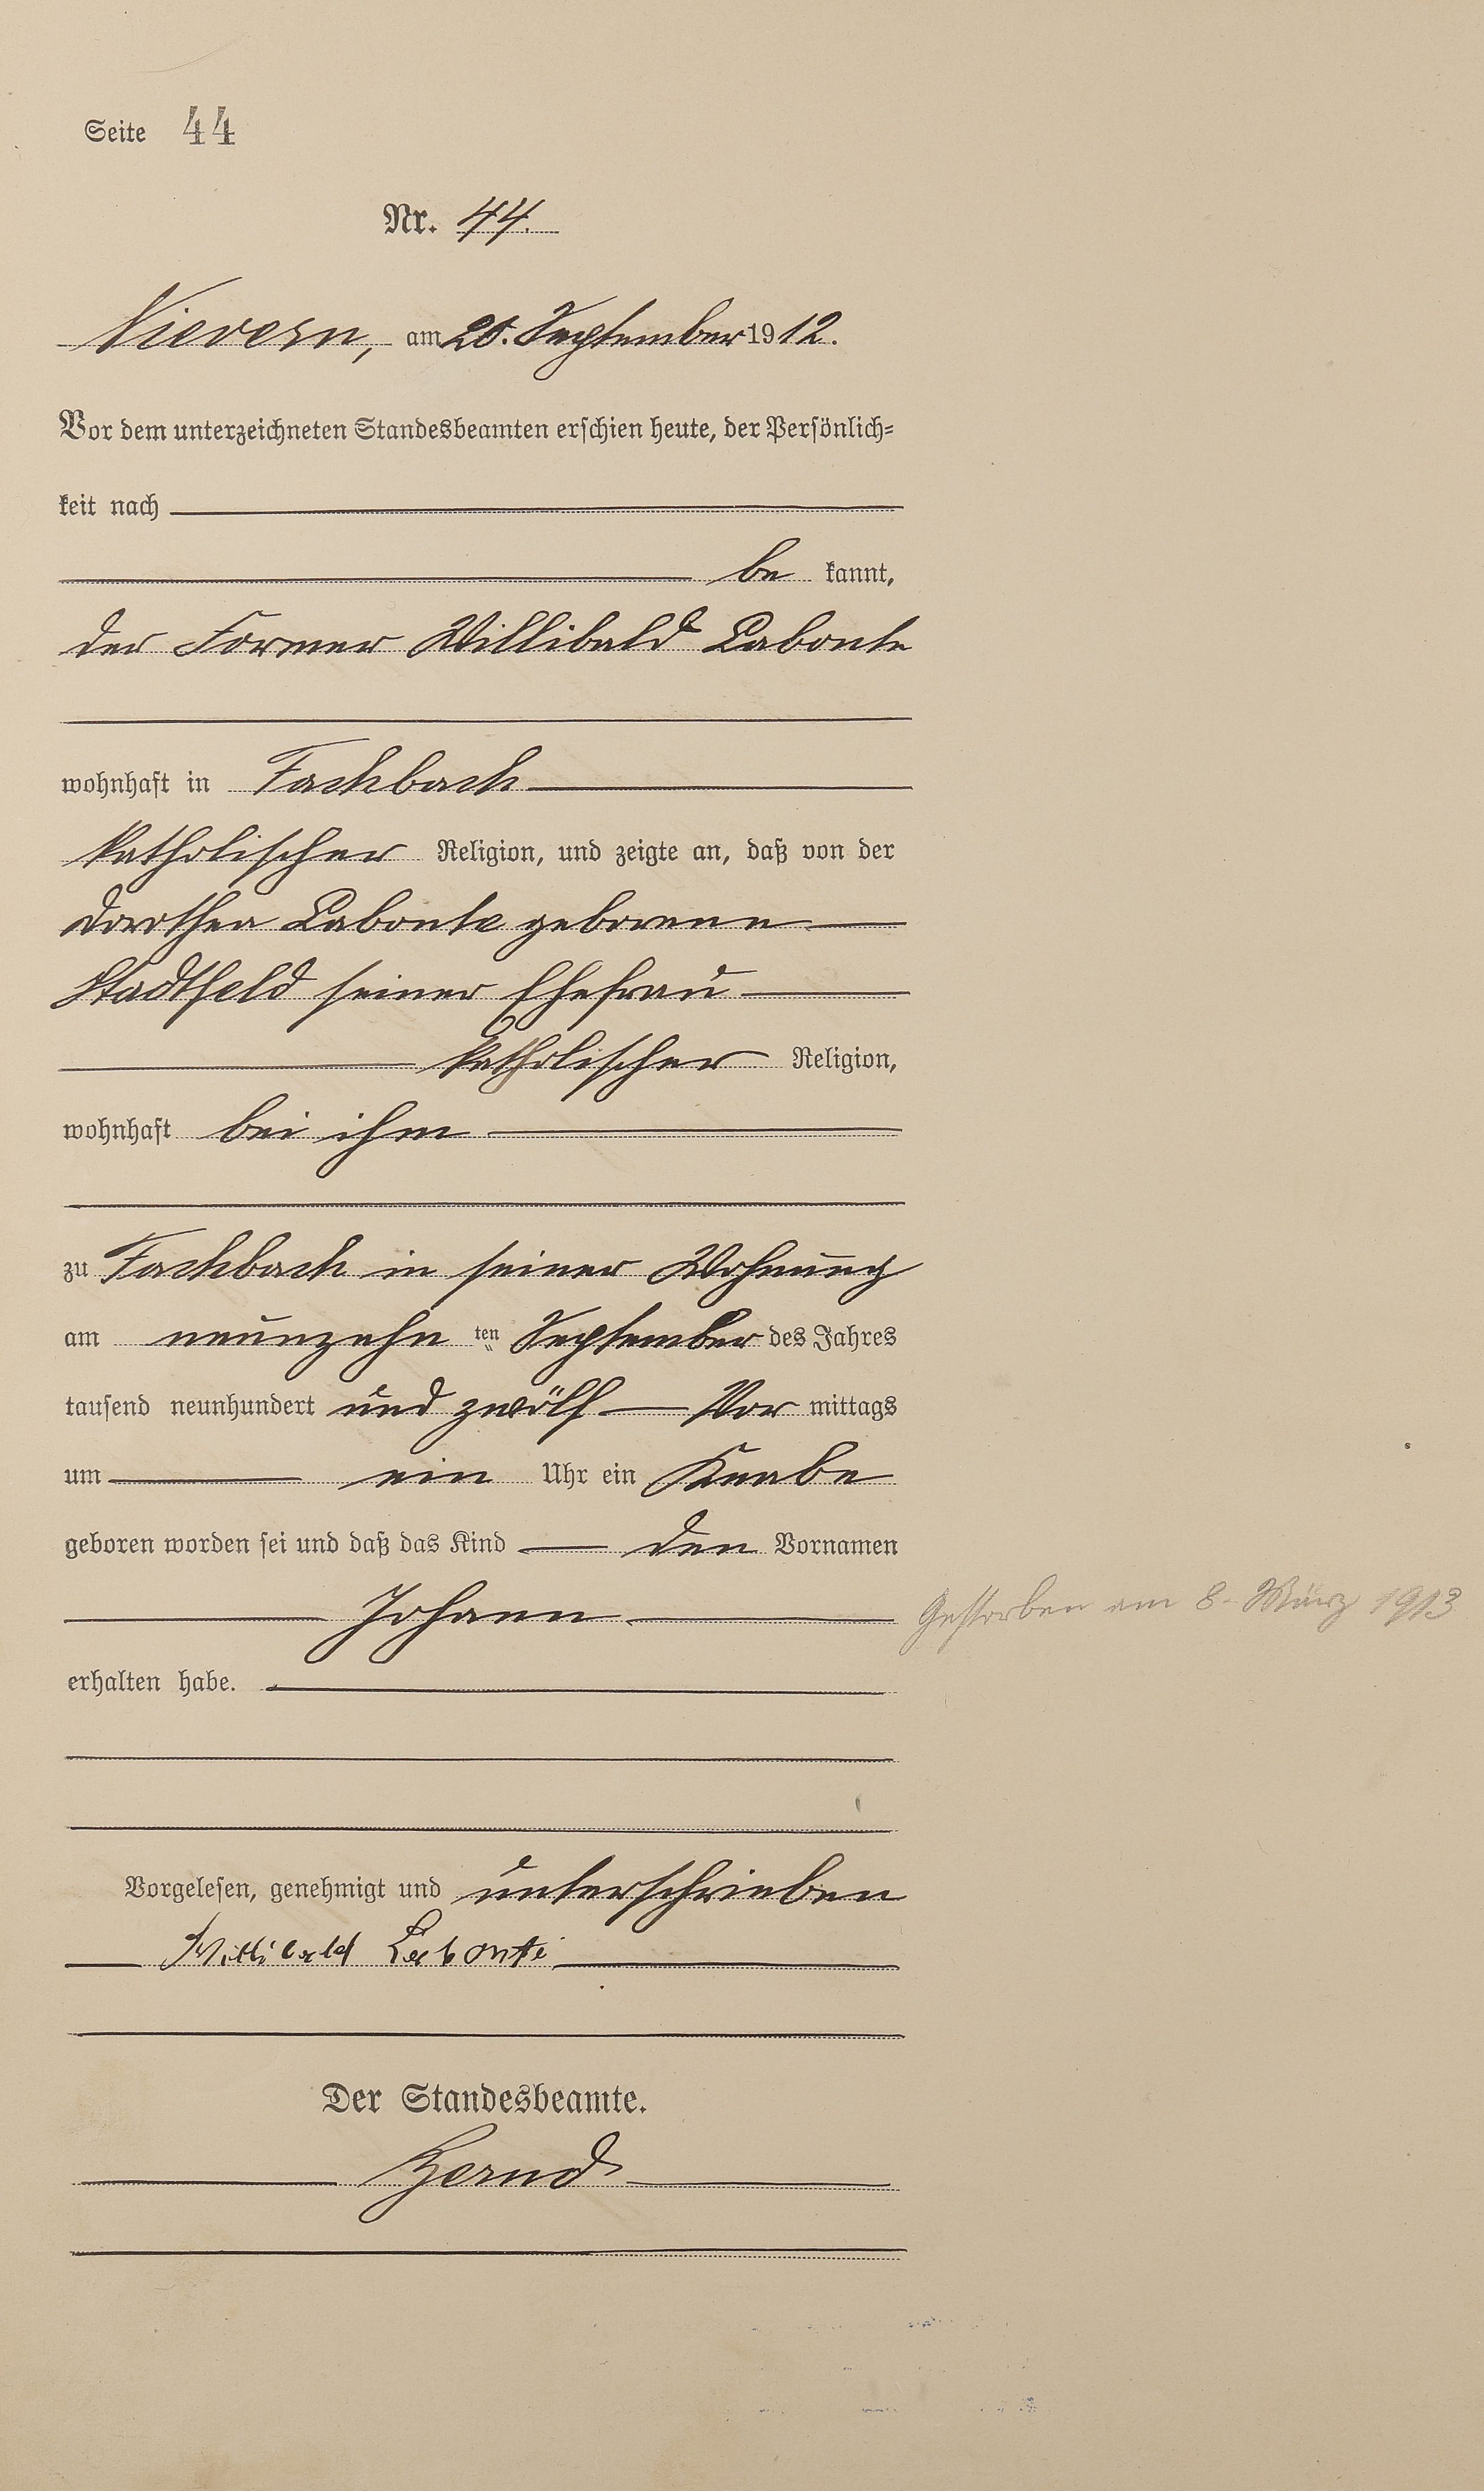 Seite 44
Nr. 44.
Nievern, am 20. September 1912.
Vor dem unterzeichneten Standesbeamten erschien heute, der Persönlich-
keit nach
be kannt,
der Former Willibald Labonte
wohnhaft in Fachbach
katholischer Religion, und zeigte an, daß von der
Dorothea Labonte geborenen
Stadtfeld seiner Ehefrau
katholischer Religion,
wohnhaft bei ihm
zu Fachbach in seiner Wohnung
am neunzehn ten September des Jahres
tausend neunhundert und zwölf Vor mittags
um ein Uhr ein Knabe
geboren worden sei und daß das Kind den Vornamen
Johann
Gestorben am 8. März 1913
erhalten habe.
Vorgelesen, genehmigt und unterschrieben
Willibald Labonte
Der Standesbeamte.